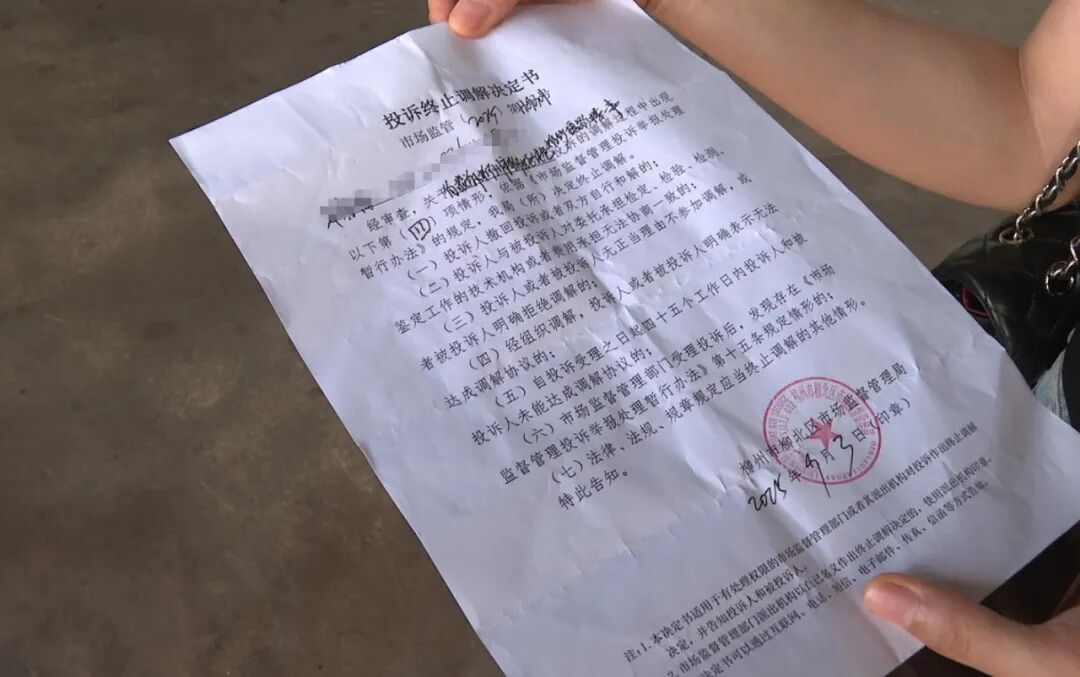 投诉终止调解决定书
市场监管（2025）
经审查，关于 投诉的调解过程中出现
以下第（四）项情形，依据《市场监督管理投诉举报处理
暂行办法》的规定，我局（所）决定终止调解。
（一）投诉人撤回投诉或者双方自行和解的；
（二）投诉人与被投诉人对委托承担检定、检验、检测、
鉴定工作的技术机构或者费用承担无法协商一致的；
（三）投诉人或者被投诉人无正当理由不参加调解，或
者被投诉人明确拒绝调解的；
（四）经组织调解，投诉人或者被投诉人明确表示无法
达成调解协议的；
（五）自投诉受理之日起四十五个工作日内投诉人和被
投诉人未能达成调解协议的；
（六）市场监督管理部门受理投诉后，发现存在《市场
监督管理投诉举报处理暂行办法》第十五条规定情形的；
（七）法律、法规、规章规定应当终止调解的其他情形。
特此告知。
柳州市柳北区市场监督管理局
2025年9月3日（印章）
注：1.本决定书适用于有处理权限的市场监督管理部门或者其派出机构对投诉作出终止调解
决定，并告知投诉人和被投诉人。
2.市场监督管理部门派出机构以自己名义作出终止调解决定的，使用派出机构印章。
决定书可以通过互联网、电话、短信、电子邮件、传真、信函等方式告知。